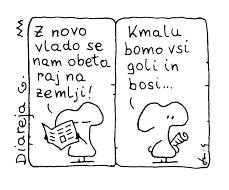 Diareja 6.
Z novo
vlado se
nam obeta
raj na
zemlji!
Kmalu
bomo vsi
goli in
bosi...